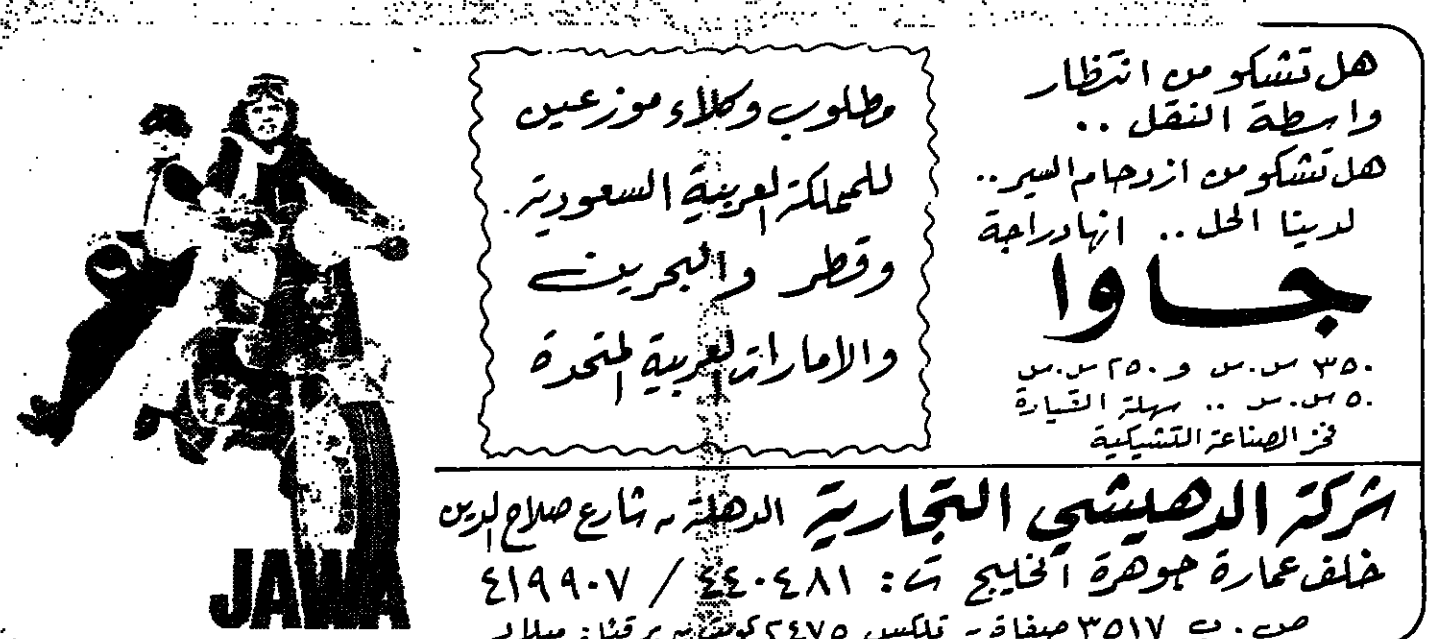 هل تشكو من انتظار
واسطة النقل ..
هل تشكو من ازدحام السير ..
لدينا الحل .. انها دراجة
جاوا
٣٥٠ س.س و ٢٥٠ س.س
٥٠ س.س .. سهلة القيادة
فخر الصناعة التشيكية
مطلوب وكلاء موزعين
للمملكة العربية السعودية
وقطر والبحرين
والامارات العربية المتحدة
JAWA
شركة الدهيشي التجارية الدهلة - شارع صلاح الدين
خلف عمارة جوهرة الخليج ت: ٤٤٠٤٨١ / ٤١٩٩٠٧
ص.ب ٣٥١٧ صفاة - تلكس ٢٤٧٥ كويت - برقيا: